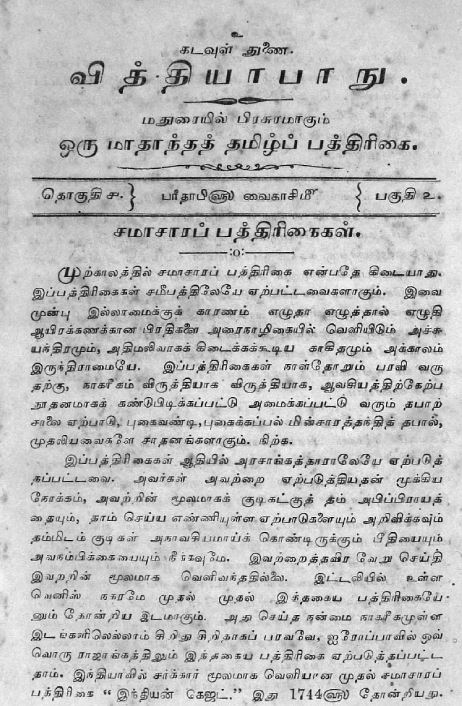 உ
கடவுள் துணை.
வித்தியாபாநு.
மதுரையில் பிரசுரமாகும்
ஒரு மாதாந்தத் தமிழ்ப் பத்திரிகை.
தொகுதி ௪. } பரீதாபி௵ வைகாசி௴ { பகுதி ௨.
சமாசாரப் பத்திரிகைகள்.
—:o:—
முற்காலத்தில் சமாசாரப் பத்திரிகை என்பதே கிடையாது.
இப்பத்திரிகைகள் சமீபத்திலேயே ஏற்பட்டவைகளாகும். இவை
முன்பு இல்லாமைக்குக் காரணம் எழுதா எழுத்தால் எழுதி
ஆயிரக்கணக்கான பிரதிகளை அரைநாழிகையில் வெளியிடும் அச்சு
யந்திரமும், அதிமலிவாகக் கிடைக்கக்கூடிய காகிதமும் அக்காலம்
இருந்திராமையே. இப்பத்திரிகைகள் நாள்தோறும் பரவி வரு
தற்கு, நாகரீகம் விருத்தியாக விருத்தியாக, ஆவசியத்திற்கேற்ப
நூதனமாகக் கண்டுபிடிக்கப்பட்டு அமைக்கப்பட்டு வரும் தபாற்
சாலை ஏற்பாடு, புகைவண்டி, புகைக்கப்பல் மின்சாரத்தந்தித் தபால்,
முதலியவைகளே சாதனங்களாகும். நிற்க.
இப்பத்திரிகைகள் ஆதியில் அரசாங்கத்தாராலேயே ஏற்படுத்
தப்பட்டவை. அவர்கள் அவற்றை ஏற்படுத்தியதன் முக்கிய
நோக்கம், அவற்றின் மூலமாகக் குடிகட்குத் தம் அபிப்பிராயத்
தையும், தாம் செய்ய எண்ணியுள்ள ஏற்பாடுகளையும் அறிவிக்கவும்
தம்மிடம் குடிகள் அநாவசியமாய்க் கொண்டிருக்கும் பீதியையும்
அவநம்பிக்கையையும் நீக்கவுமே. இவற்றைத்தவிர வேறு செய்தி
இவற்றின் மூலமாக வெளிவந்ததில்லை. இட்டலியில் உள்ள
வெனிஸ் நகரமே முதல் முதல் இந்தகைய பத்திரிகையே
னும் தோன்றிய இடமாகும். அது செய்த நன்மை நாகரீகமுள்ள
இடங்களிலெல்லாம் சிறிது சிறிதாகப் பரவவே, ஐரோப்பாவில் ஒவ்
வொரு ராஜாங்கத்திலும் இந்தகைய பத்திரிகை ஏற்படுத்தப்பட்ட
தாம். இந்தியாவில் சர்க்கார் மூலமாக வெளியான முதல் சமாசாரப்
பத்திரிகை "இந்தியன் கெஜட்." இது 1744௵ தோன்றியது.